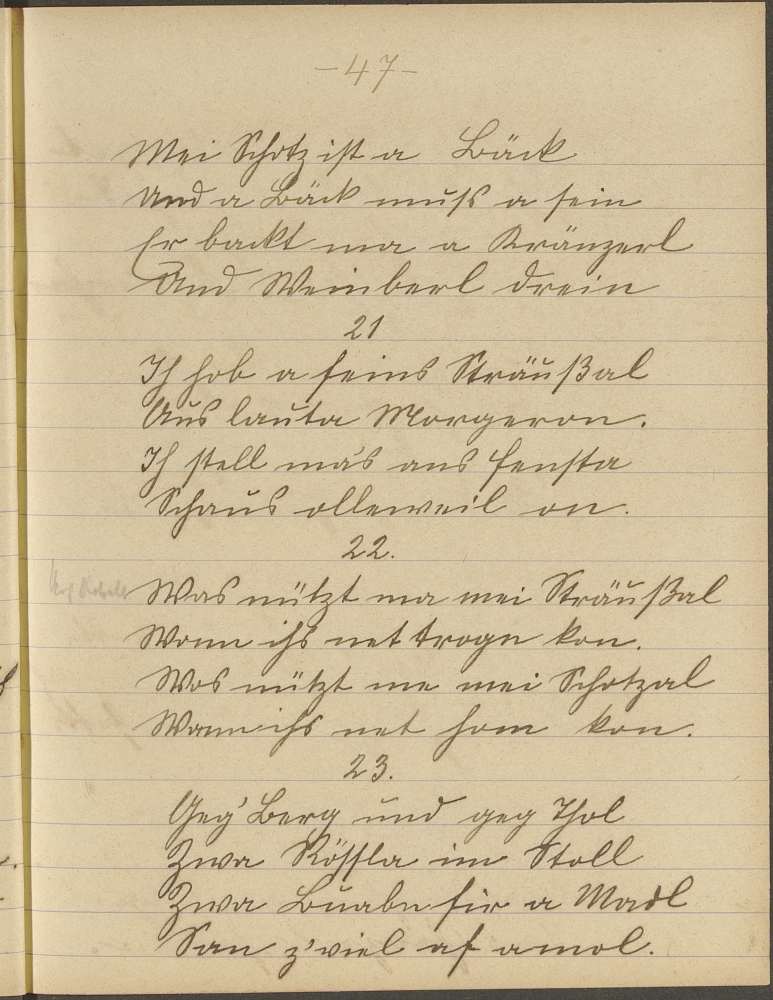 -47-
Mei Schotz ist a Bäck
Und a Bäck muß a sein
Er backt ma a Kränzerl
Und Weinberl drein
21
Ih hob a feins Sträußal
Aus lauta Morgeron.
Ih stell ma's ans Fensta
Schaus olleweil on.
22.
Was nützt ma mei Sträußal
Wonn ihs net trogn kon.
Wos nützt me mei Schotzal
Wann ihs net hom kon.
23.
Geg' Berg und geg Thol
Zwa Rössla im Stoll
Zwa Buabn fir a Madl
San z'viel af amol.